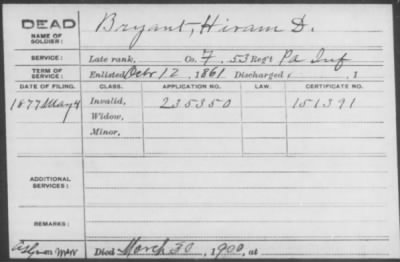 DEAD Bryant, Hiram D.
NAME OF SOLDIER:
SERVICE: Late rank, Co. F. 53 Reg't Pa Inf
TERM OF SERVICE: Enlisted Octbr 12, 1861 Discharged , 1
DATE OF FILING. CLASS. APPLICATION NO. LAW. CERTIFICATE NO.
1877 May 4 Invalid, 235350 151391
Widow,
Minor,
ADDITIONAL SERVICES:
REMARKS:
Died March 30, 1900, at